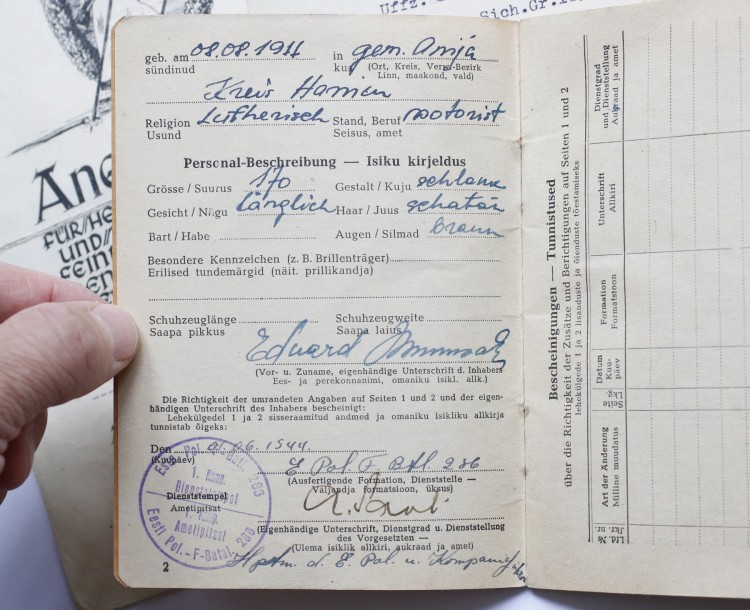 Uffz.
Sich.Gr.
Ang
FÜR/HE
UND/
FEINS
EN
geb. am 08.08.1911 in gem. Anija
sündinud (Ort, Kreis, Verw-Bezirk
Linn, maakond, vald)
Kreis Harrien
Religion Lutherisch Stand, Beruf Motorist
Usund Seisus, amet
Personal-Beschreibung — Isiku kirjeldus
Grösse / Suurus 170 Gestalt / Kuju schlank
Gesicht / Nägu länglich Haar / Juus
Bart / Habe Augen / Silmad braun
Besondere Kennzeichen (z. B. Brillenträger)
Erilised tundemärgid (näit. prillikandja)
Schuhzeuglänge Schuhzeugweite
Saapa pikkus Saapa laius
Eduard
(Vor- u. Zuname, eigenhändige Unterschrift d. Inhabers
Ees- ja perekonnanimi, omaniku isikl. allk.)
Die Richtigkeit der umrandeten Angaben auf Seiten 1 und 2 und der eigen-
händigen Unterschrift des Inhabers bescheinigt:
Lehekülgedel 1 ja 2 sisseraamitud andmed ja omaniku isikliku allkirja
tunnistab õigeks:
Den 01.06.1944
(Kuupäev) E Pol. F. Btl. 286
(Ausfertigende Formation, Dienststelle —
Väljandja formatsioon, üksus)
1. Komp.
Dienststempel
Dienststempel
Ametipitsat
Komp.
Ametipitsat
Eesti Pol.-F-Batal.
(Eigenhändige Unterschrift, Dienstgrad u. Dienststellung
des Vorgesetzten —
Ülema isiklik allkiri, aukraad ja amet)
Hptm. d. E. Pol. u.
2
Bescheinigungen — Tunnistused
über die Richtigkeit der Zusätze und Berichtigungen auf Seiten 1 und 2
lehekülgede 1 ja 2 lisanduste ja õienduste tõestamiseks
Lfd. №
Jkr. nr.
Art der Änderung
Milline muudatus
Seite
Lkg.
Datum
Kuu-
päev
Formation
Formatsioon
Unterschrift
Allkiri
Dienstgrad
und Dienststellung
Aukraad ja amet